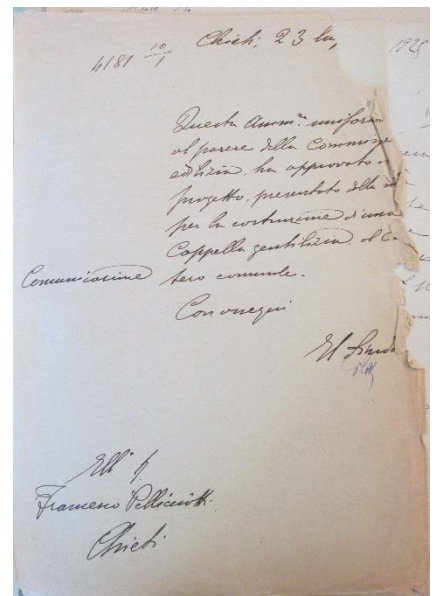 4181 10/1
Chieti, 23 lu
1925
Questa Amm.ne uniforma
al parere della Commiss
edilizia, ha approvato i
progetto presentato dalla
per la costruzione di una
Cappella gentilizia al Ci
tero comunale.
Comunicazione
Con ossequi
Il Sinda
Ill.o S.
Francesco Pellicciotti
Chieti